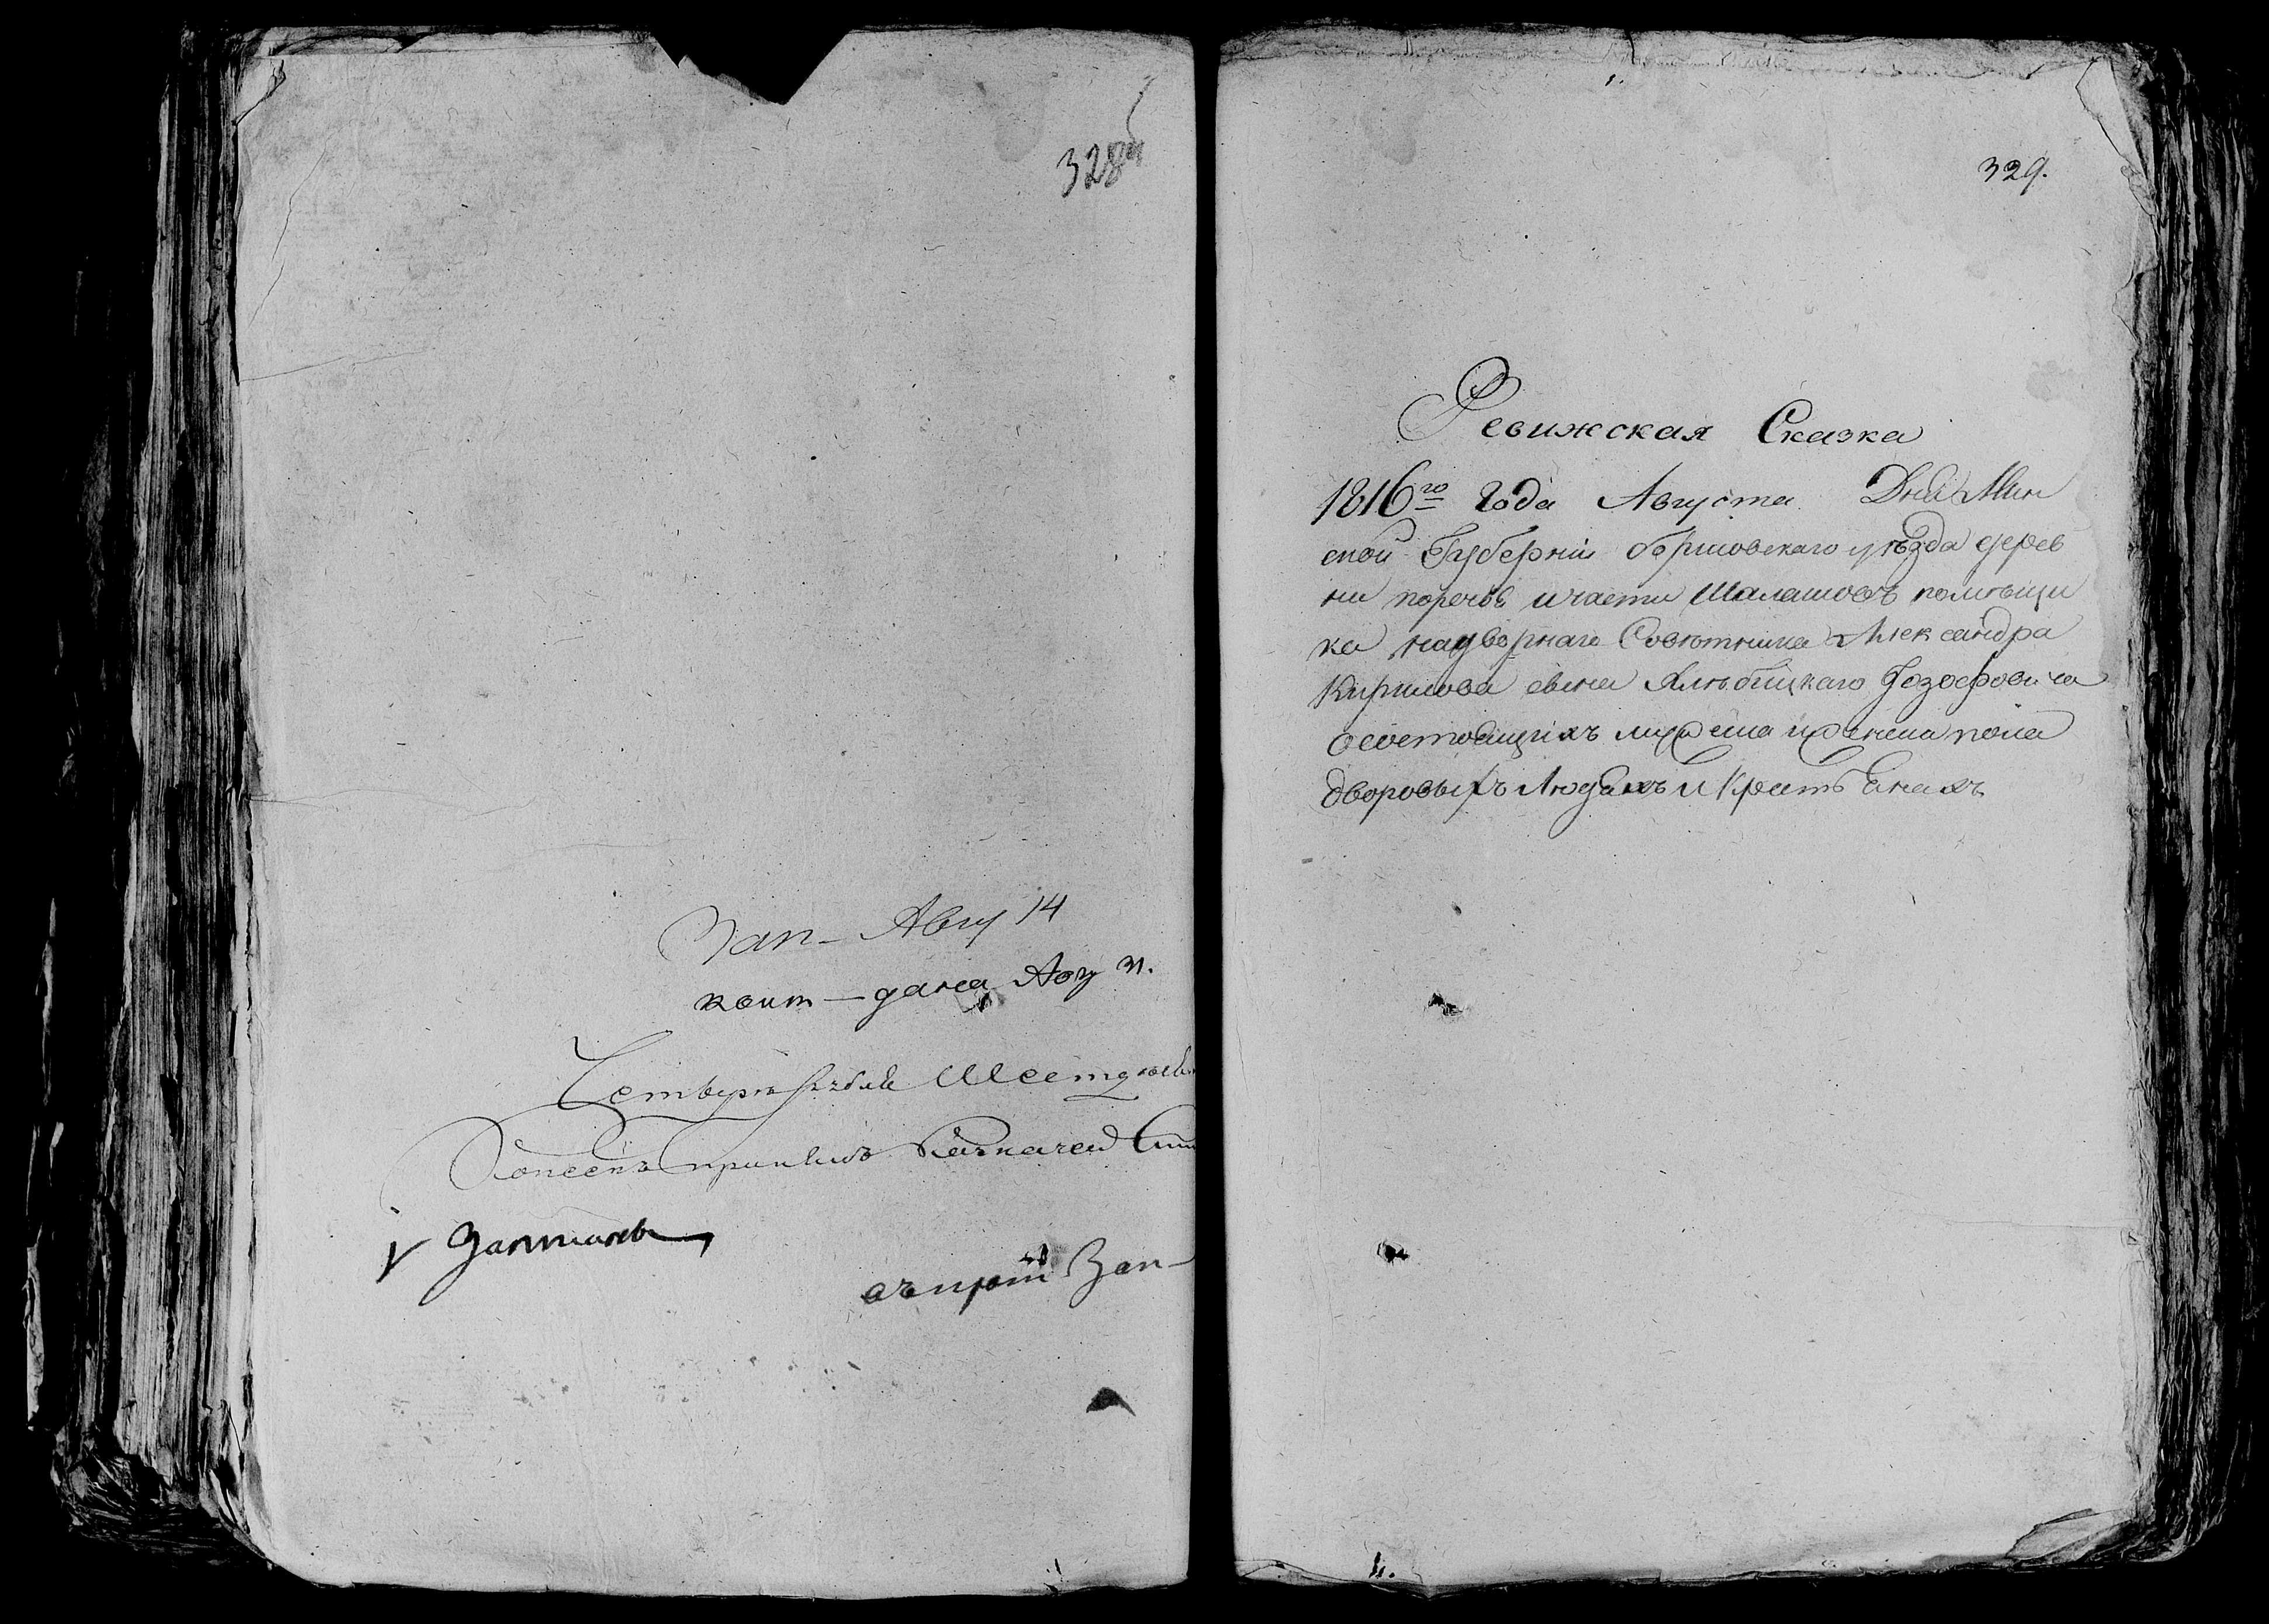 328
Зап— Авгу 14
квит — дана Авгу 31.
Четыре рубли Шесть
Копеекъ принялъ Казначей
Записано
Зап—
329.
Ревижская Сказка
1816го Года Августа Дня Мин
ской Губерніи борисовскаго уѣзда дерев
ни поречье и части Шалашовъ помѣщи
ка надворнаго Совѣтника Александра
Кирилова сына Іозофовича
о состоящихъ мужеска и женска пола
дворовыхъ Людяхъ и Крестьянахъ